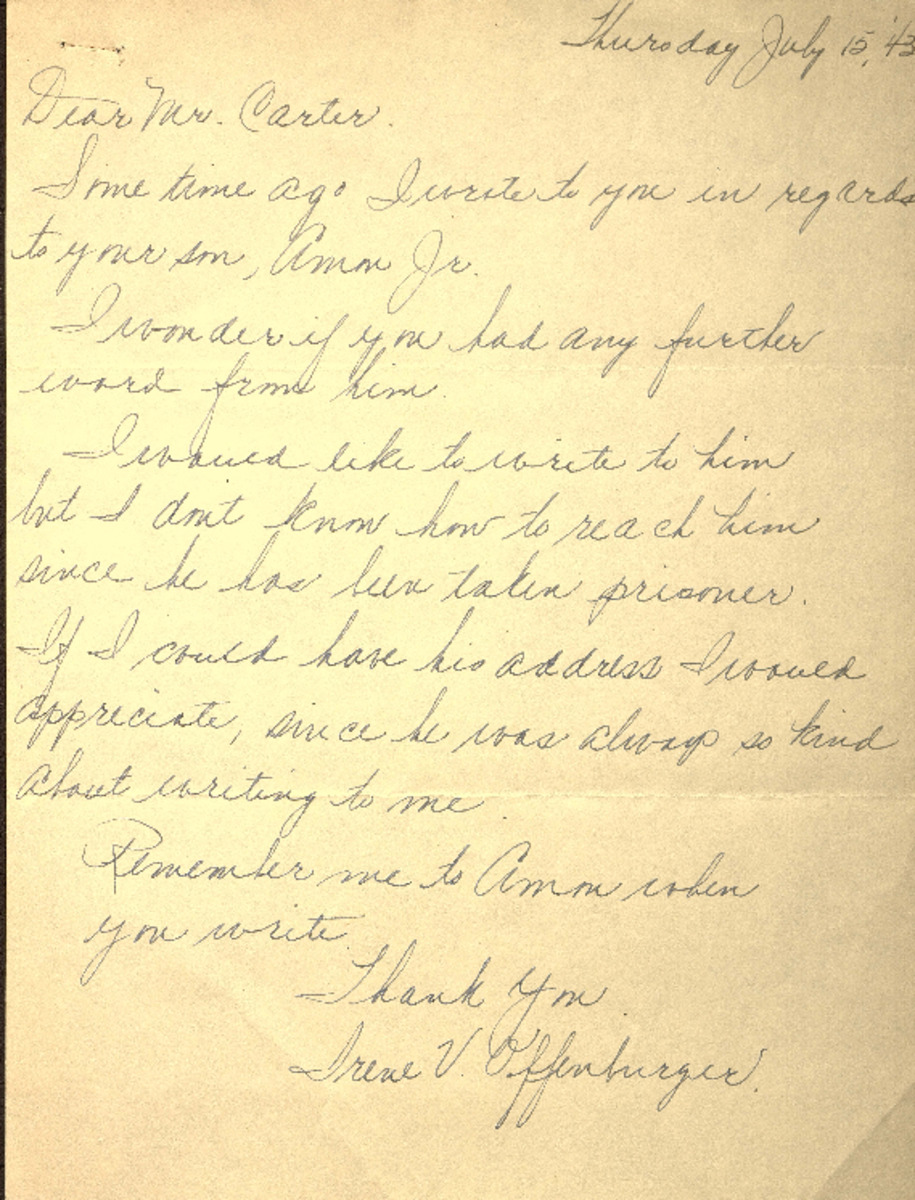 Thursday July 15, '43
Dear Mr. Carter.
Some time ago I wrote to you in regards
to your son, Amon Jr.
I wonder if you had any further
word from him.
I would like to write to him
but I don't know how to reach him
since he has been taken prisoner.
If I could have his address I would
appreciate, since he was always so kind
about writing to me.
Remember me to Amon when
you write.
Thank You
Irene V. Offenburger.